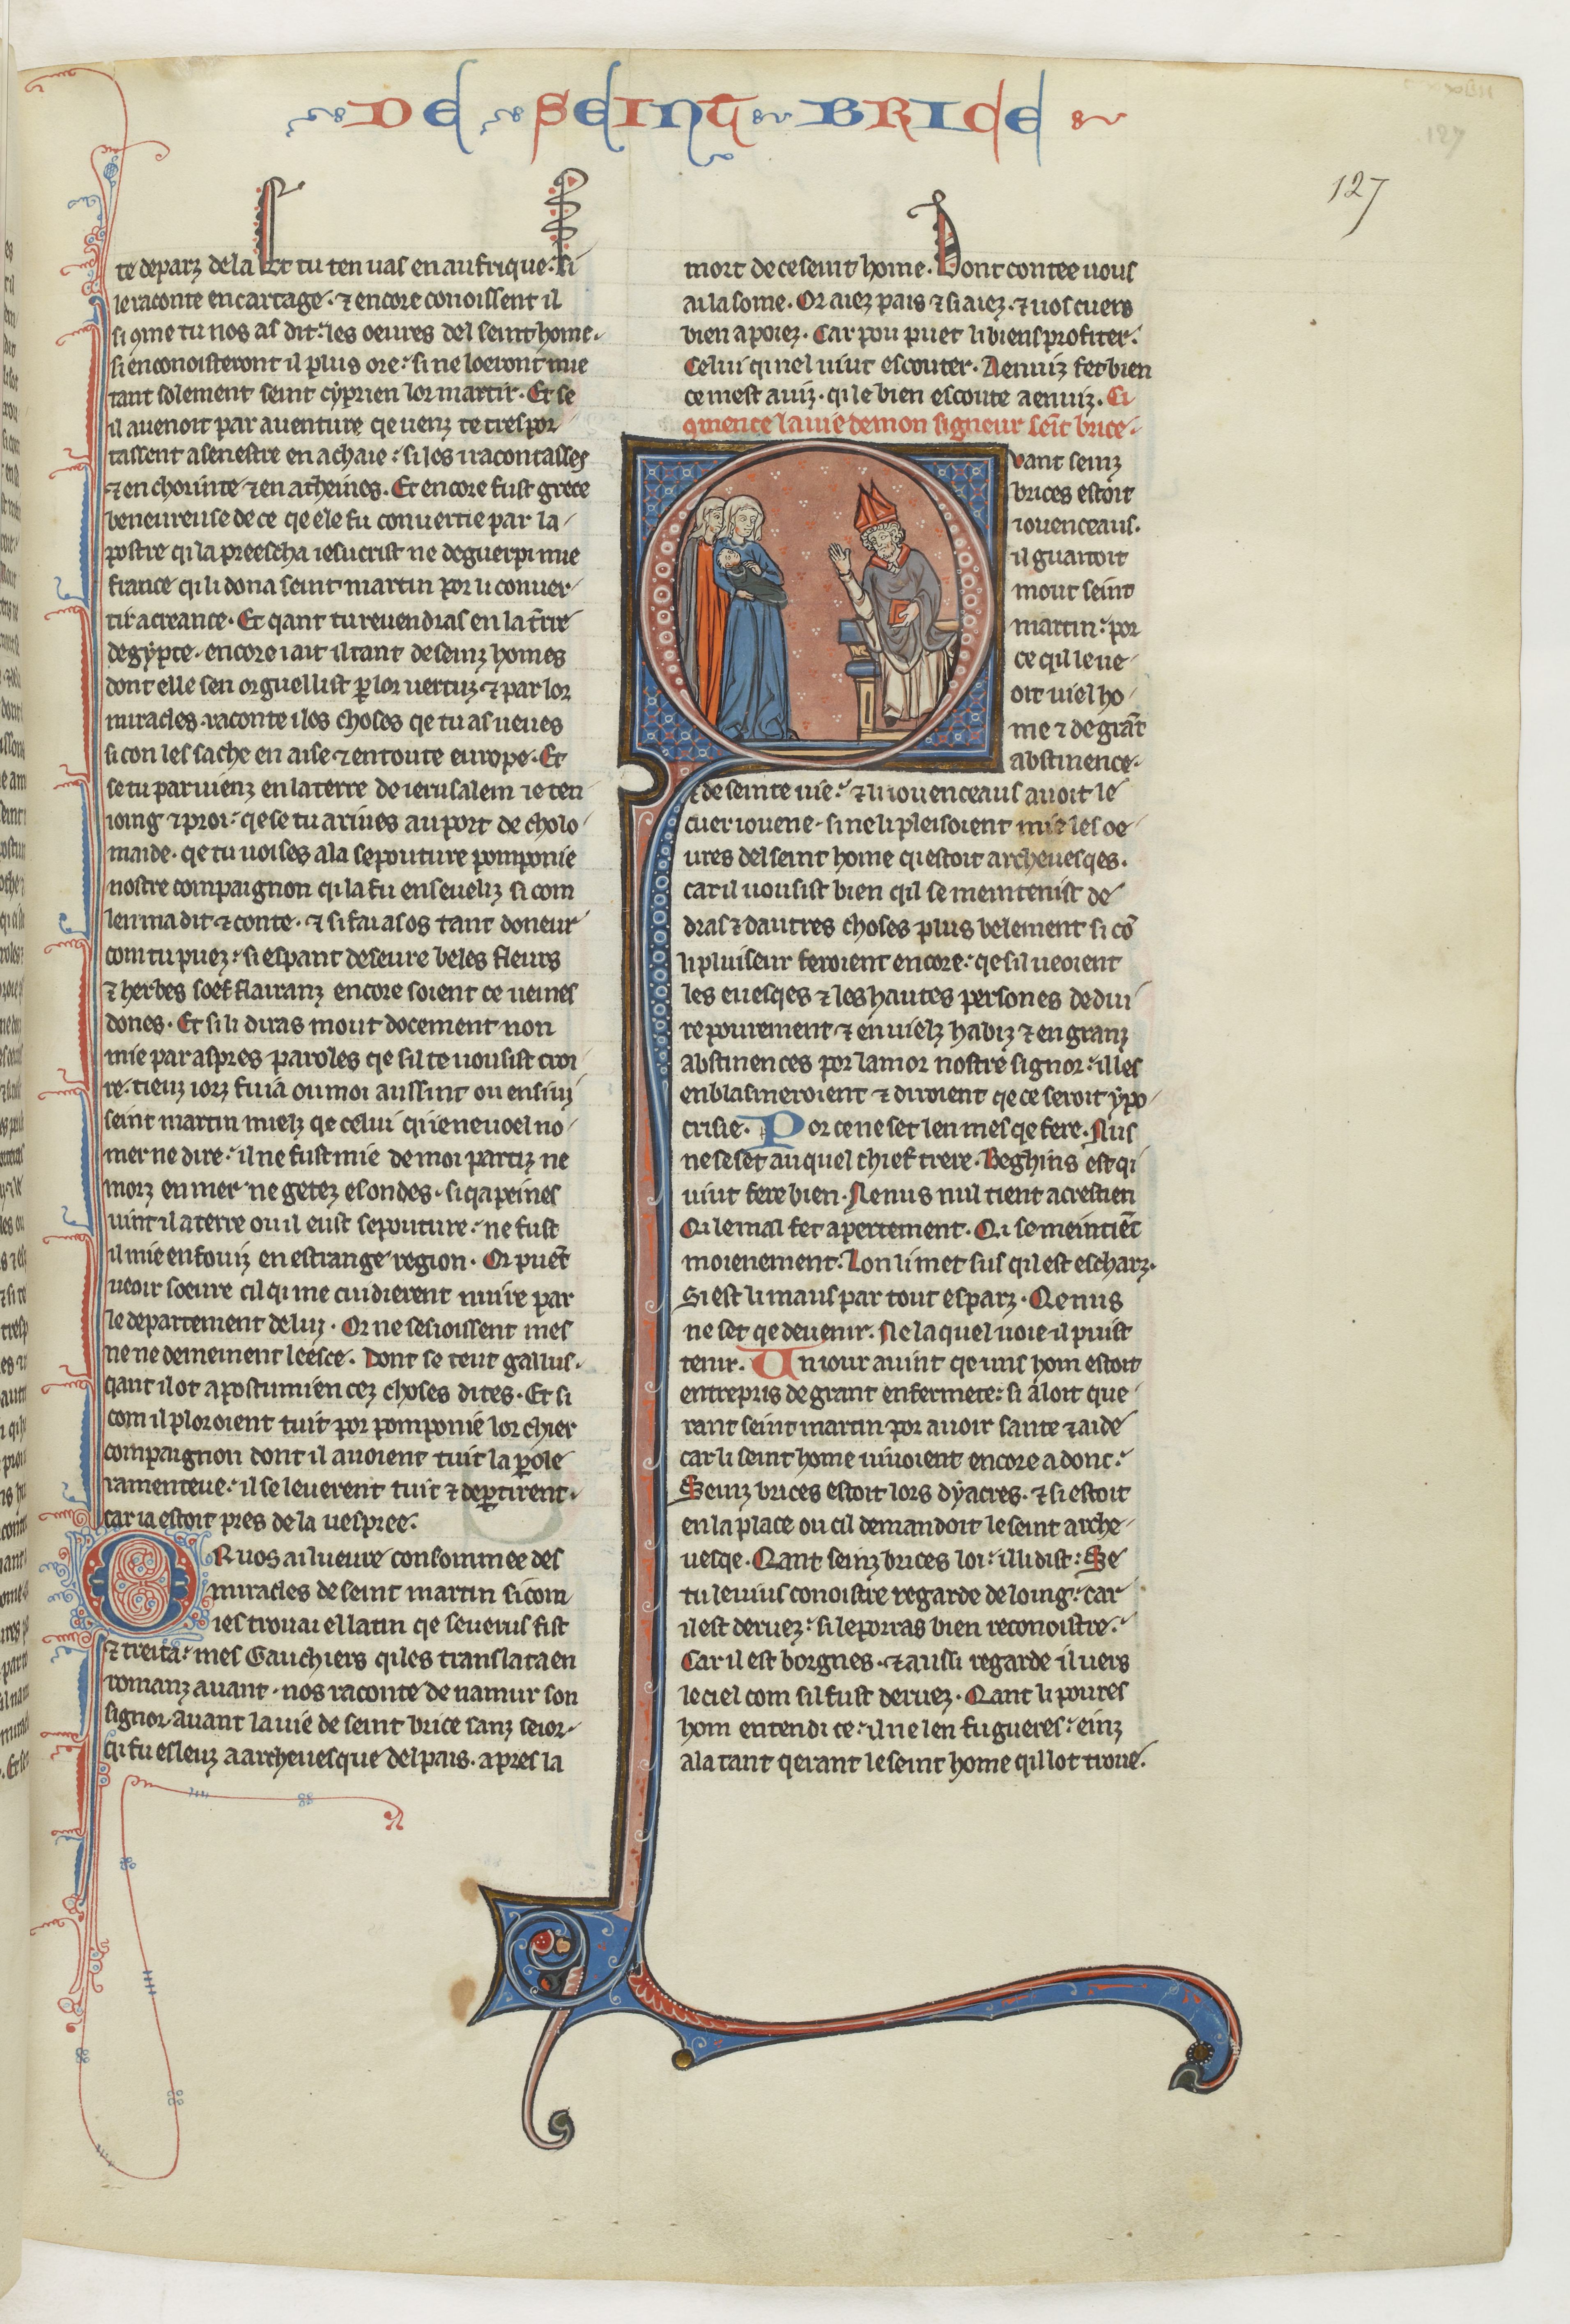 DE SEINT BRICE
127
te deparz de la Et tu ten uas en aufrique. si
le raconte en cartage. ⁊ encore conoissent il
si ꝯme tu nos as dit. les oeures del seint home.
si en conoisteront il plus ore. si ne loeront mie
tant solement seint cyprien lor martir. Et se
il auenoit par auenture qe uenz te trespor
tassent a senestre en achaie. si les i racontasses
⁊ en chorinte ⁊ en atheines. Et encore fust grece
beneureuse de ce qe ele fu conuertie par la
postre qi la preescha iesucrist ne deguerpi mie
france qi li dona seint martin por li conuer
tir a creance. Et qant tu reuendras en la t̄rre
degypte. encore i ait il tant de seinz homes
dont elle sen orguellist ꝑ lor uertuz ⁊ par lor
miracles. raconte i les choses qe tu as ueues
si con les sache en aise ⁊ en toute europe. Et
se tu paruienz en la terre de ierusalem ie ten
ioing ⁊ proi. qe se tu ariues au port de tholo
maide. qe tu uoises a la sepouture pomponie
nostre compaignon qi la fu enseueliz si com
len ma dit ⁊ conte. ⁊ si fai as os tant doneur
com tu puez. si espant deseure beles fleurs
⁊ herbes soef flairanz encore soient ce ueines
dones. Et si li diras mout docement non
mie par aspres paroles qe sil te uousist croi
re. tieuz iorz fu ia ou moi aussint ou ensiuz
seint martin mielz qe celui qi ie ne uoel no
mer ne dire. il ne fust mie de moi partiz ne
morz en mer ne getez es ondes. si qa peines
uint il a terre ou il eust sepouture. ne fust
il mie enfouiz en estrange region. Or puet
ueoir soeure cil qi me cuidierent nuire par
le departement de lui. Or ne sesioissent mes
ne ne demeinent leesce. Dont se teut gallus.
qant il ot a postumien cez choses dites. Et si
com il ploroient tuit por pomponie lor chier
compaignon dont il auoient tuit la ꝑole
ramenteue. il se leuerent tuit ⁊ deꝑtirent.
car ia estoit pres de la uespree.
OR uos ai lueure consommee des
miracles de seint martin si com
ies trouai el latin qe seuerus fist
⁊ treita. mes Gauchiers qi les translata en
romanz auant. nos raconte de namur son
signor. auant la uie de seint brice sanz seior.
qi fu esleuz a archeuesque del pais. apres la
mort de ce seint home. Dont contee uous
ai la some. Or aiez pais ⁊ si aiez. ⁊ uos cuers
bien apoiez. Car pou puet li biens profiter.
Celui qi nel uiut escouter. A enuiz fet bien
ce mest auiz. qi le bien escoute a enuiz. Ci
ꝯmence la uie de mon signeur seīt brice.
Qvant seinz
brices estoit
iouenceaus.
il guaitoit
mout seint
martin. por
ce qil le ue
oit uiel ho
me ⁊ de grāt
abstinence.
⁊ de seinte uie. ⁊ li iouenceaus auoit le
cuer iouene. si ne li pleisoient mie les oe
ures del seint home qi estoit archeuesqes.
car il uousist bien qil se meintenist de
dras ⁊ dautres choses plus belement si cō
li pluiseur feroient encore. qe sil ueoient
les euesqes ⁊ les hautes persones de dui
re pourement ⁊ en uielz habiz ⁊ en granz
abstinences por lamor nostre signor. il les
en blasmeroient ⁊ diroient qe ce seroit ypo
crisie. Por ce ne set len mes qe fere. Nus
ne se set au quel chief trere. Beghins est qi
uiut fere bien. Ne nus nul tient a crestien
Qi le mal fet apertement. Qi se meintiēt
moienement. Lon li met sus qil est escharz.
Si est li maus par tout esparz. Qe nus
ne set qe deuenir. Ne la quel uoie il puist
tenir. Un iour auint qe uns hom estoit
entrepris de grant enfermete. si aloit que
rant seint martin por auoir sante ⁊ aide
car li seint home uiuoient encore adonc.
Seinz brices estoit lors dyacres. ⁊ si estoit
en la place ou cil demandoit le seint arche
uesqe. Qant seinz brices loi. il li dist. Se
tu le uius conoistre regarde de loing. car
il est deruez. si le porras bien reconoistre.
Car il est borgnes. ⁊ aussi regarde il uers
le ciel com sil fust deruez. Qant li poures
hom entendi ce. il ne len fu gueres. einz
ala tant qerant le seint home qil lot troue.